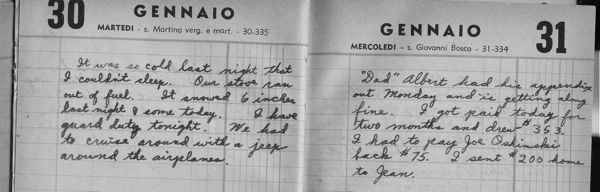 30 GENNAIO
MARTEDI - s. Martina verg. e mart. - 30-335
It was so cold last night that
I couldn't sleep. Our stove ran
out of fuel. It snowed 6 inches
last night & some today. I have
guard duty tonight. We had
to cruise around with a jeep
around the airplanes.
GENNAIO 31
MERCOLEDI - s. Giovanni Bosco - 31-334
"Dad" Albert had his appendix
out Monday and is getting along
fine. I got paid today for
two months and drew $353.
I had to pay Joe Oshinski
back $75. I sent $200 home
to Jean.